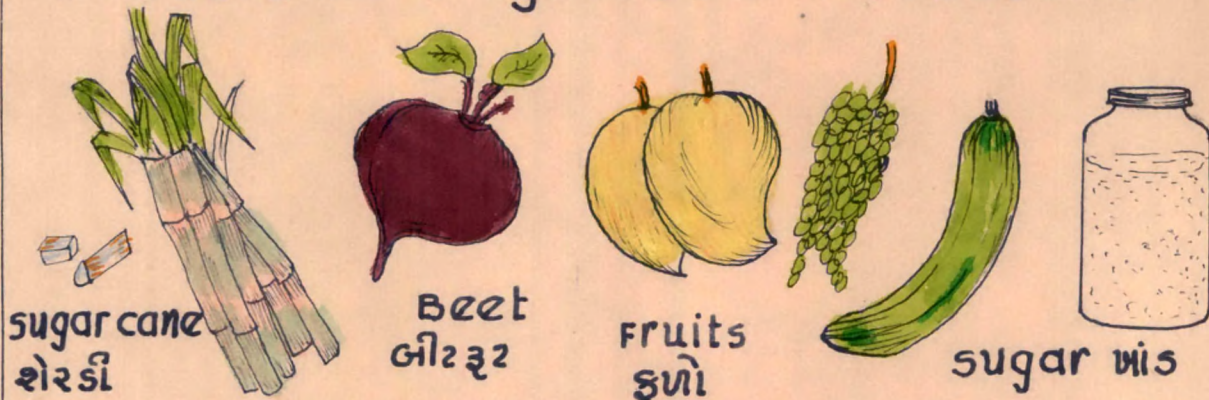 sugar cane
શેરડી
Beet
બીટરૂટ
Fruits
ફળો
sugar ખાંડ